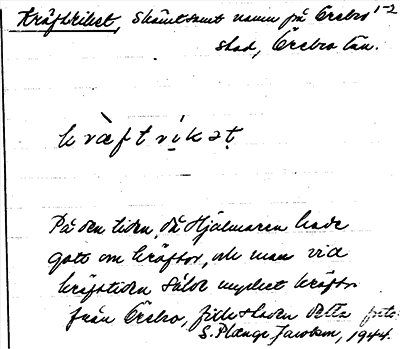 Kräftriket, skämtsamt namn på Örebro 1-2
stad, Örebro län.
kräftrikət
På den tiden, då Hjälmaren hade
gott om kräftor, och man vid
kräfttiden sålde mycket kräftor
från Örebro, fick staden detta
S. Plænge Jacobson, 1944.